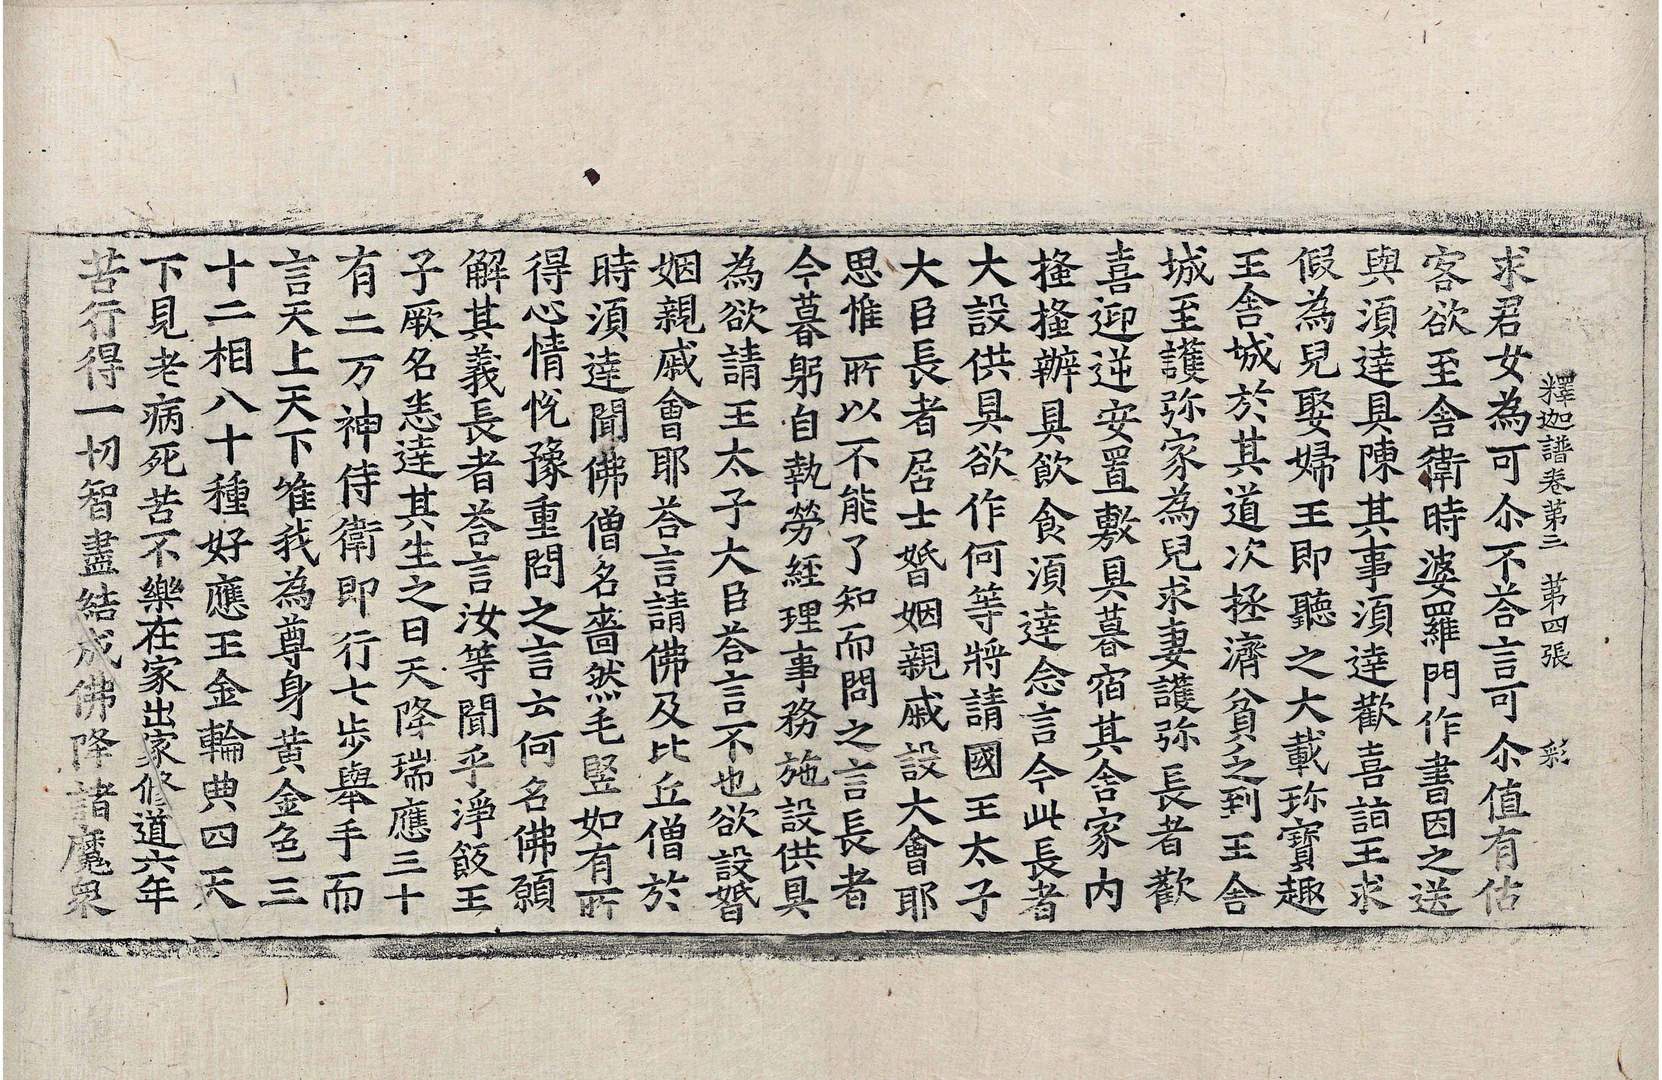 釋迦譜卷第三　第四張　彩
求君女為可尒不荅言可尒值有估
客欲至舍衛時婆羅門作書因之送
與湏達具陳其事湏達歡喜詣王求
假為兒娶婦王即聽之大載珎寶趣
王舍城於其道次拯濟貧乏到王舍
城至護弥家為兒求妻護弥長者歡
喜迎逆安置敷具暮宿其舍家內
搔搔辦具飲食湏達念言今此長者
大設供具欲作何等將請國王太子
大臣長者居士婚姻親戚設大會耶
思惟所以不能了知而問之言長者
今暮躬自執勞經理事務施設供具
為欲請王太子大臣荅言不也欲設婚
姻親戚會耶荅言請佛及比丘僧於
時湏達聞佛僧名嗇然毛竪如有所
得心情悅豫重問之言云何名佛願
解其義長者荅言汝等聞乎淨飯王
子厥名悉達其生之日天降瑞應三十
有二万神侍衛即行七步舉手而
言天上天下唯我為尊身黃金色三
十二相八十種好應王金輪典四天
下見老病死苦不樂在家出家修道六年
苦行得一切智盡結成佛降諸魔衆